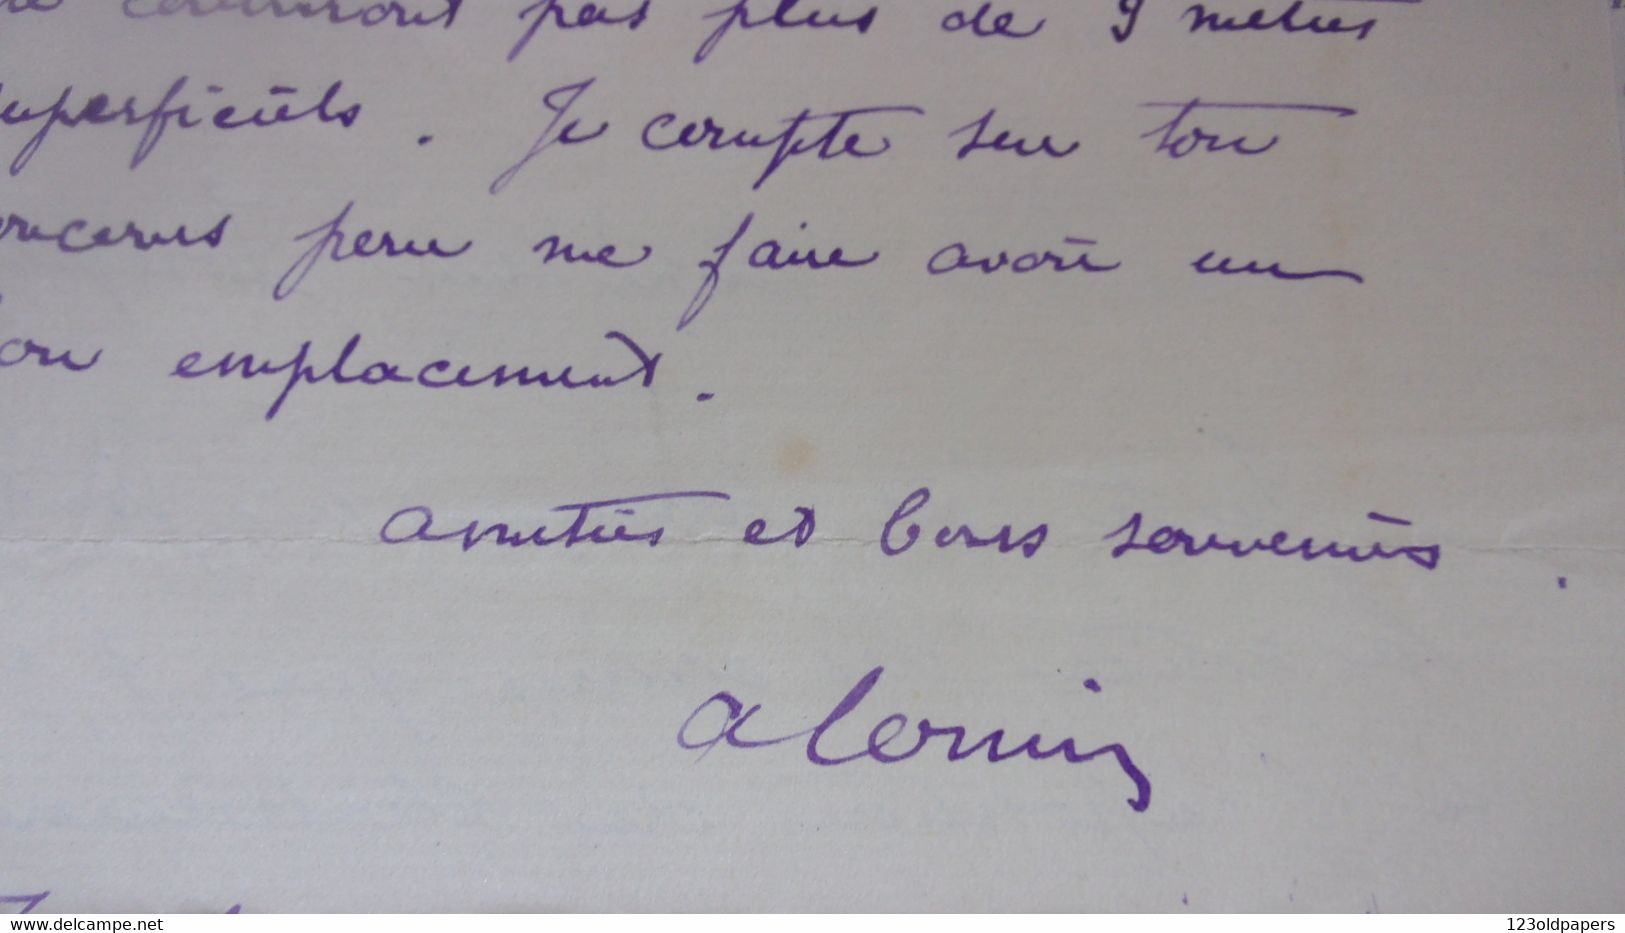 pas plus de 9 mètres
superficiels. Je compte sur ton
concours pour me faire avoir un
bon emplacement.
amitiés et bons souvenirs.
delcampe.net
123oldpapers